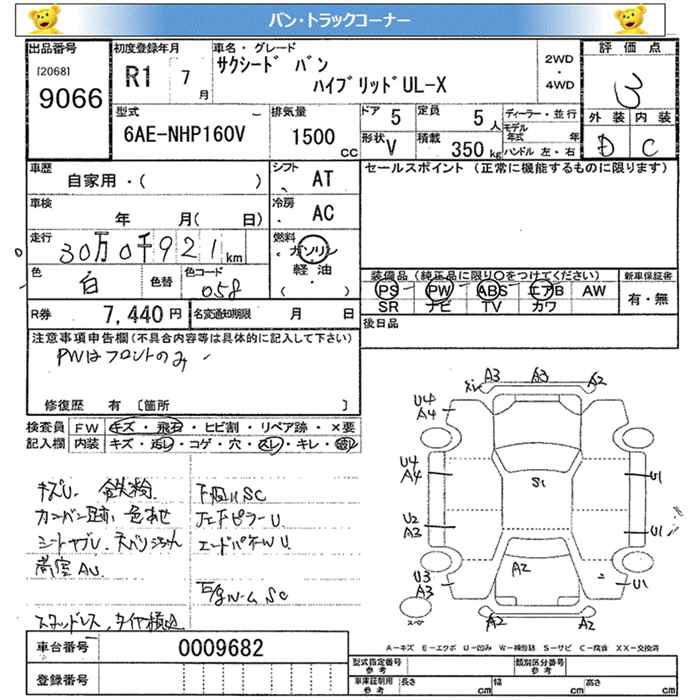 バン・トラックコーナー
出品番号
[2068]
9066
初度登録年月
R1 7月
車名・グレード
サクシード バン
ハイブリッドUL-X
2WD
・
4WD
評価点
3
外装 内装
D C
型式
6AE-NHP160V
排気量
1500 cc
ドア 5
定員 5 人
形状 V
積載 350 kg
ディーラー・並行
モデル年式 年
ハンドル 左・右
車歴
自家用・( )
シフト AT
車検
年 月( 日)
冷房 AC
走行
30万0千921 km
燃料
ガソリン
軽油
( ・ )
色 白
色替
色コード 058
R券 7,440 円
名変通知期限 月 日
セールスポイント (正常に機能するものに限ります)
装備品 (純正品に限り○をつけてください)
PS PW ABS エアB AW
SR ナビ TV カワ
新車保証書
有・無
後日品
注意事項申告欄 (不具合内容等は具体的に記入して下さい)
PWはフロントのみ
修復歴 有 〔箇所 〕
検査員 FW キズ・飛石・ヒビ割・リペア跡・×要
記入欄 内装 キズ・汚レ・コゲ・穴・スレ・キレ・破レ
キズU 鉄粉
カンバン跡 色あせ
下廻りSC
スタッドレスタイヤ積込
A3 A3 A2
U4
A4
U4
A4
S1
U1
U2
A3
U1
A2
U3
A3
U1
A2 A2
車台番号 0009682
登録番号
A-キズ E-エクボ U-凹み W-補修跡 S-サビ C-腐食 XX-交換済
型式指定番号
参考
類別区分番号
参考
車庫証明用
参考
長さ cm 幅 cm 高さ cm